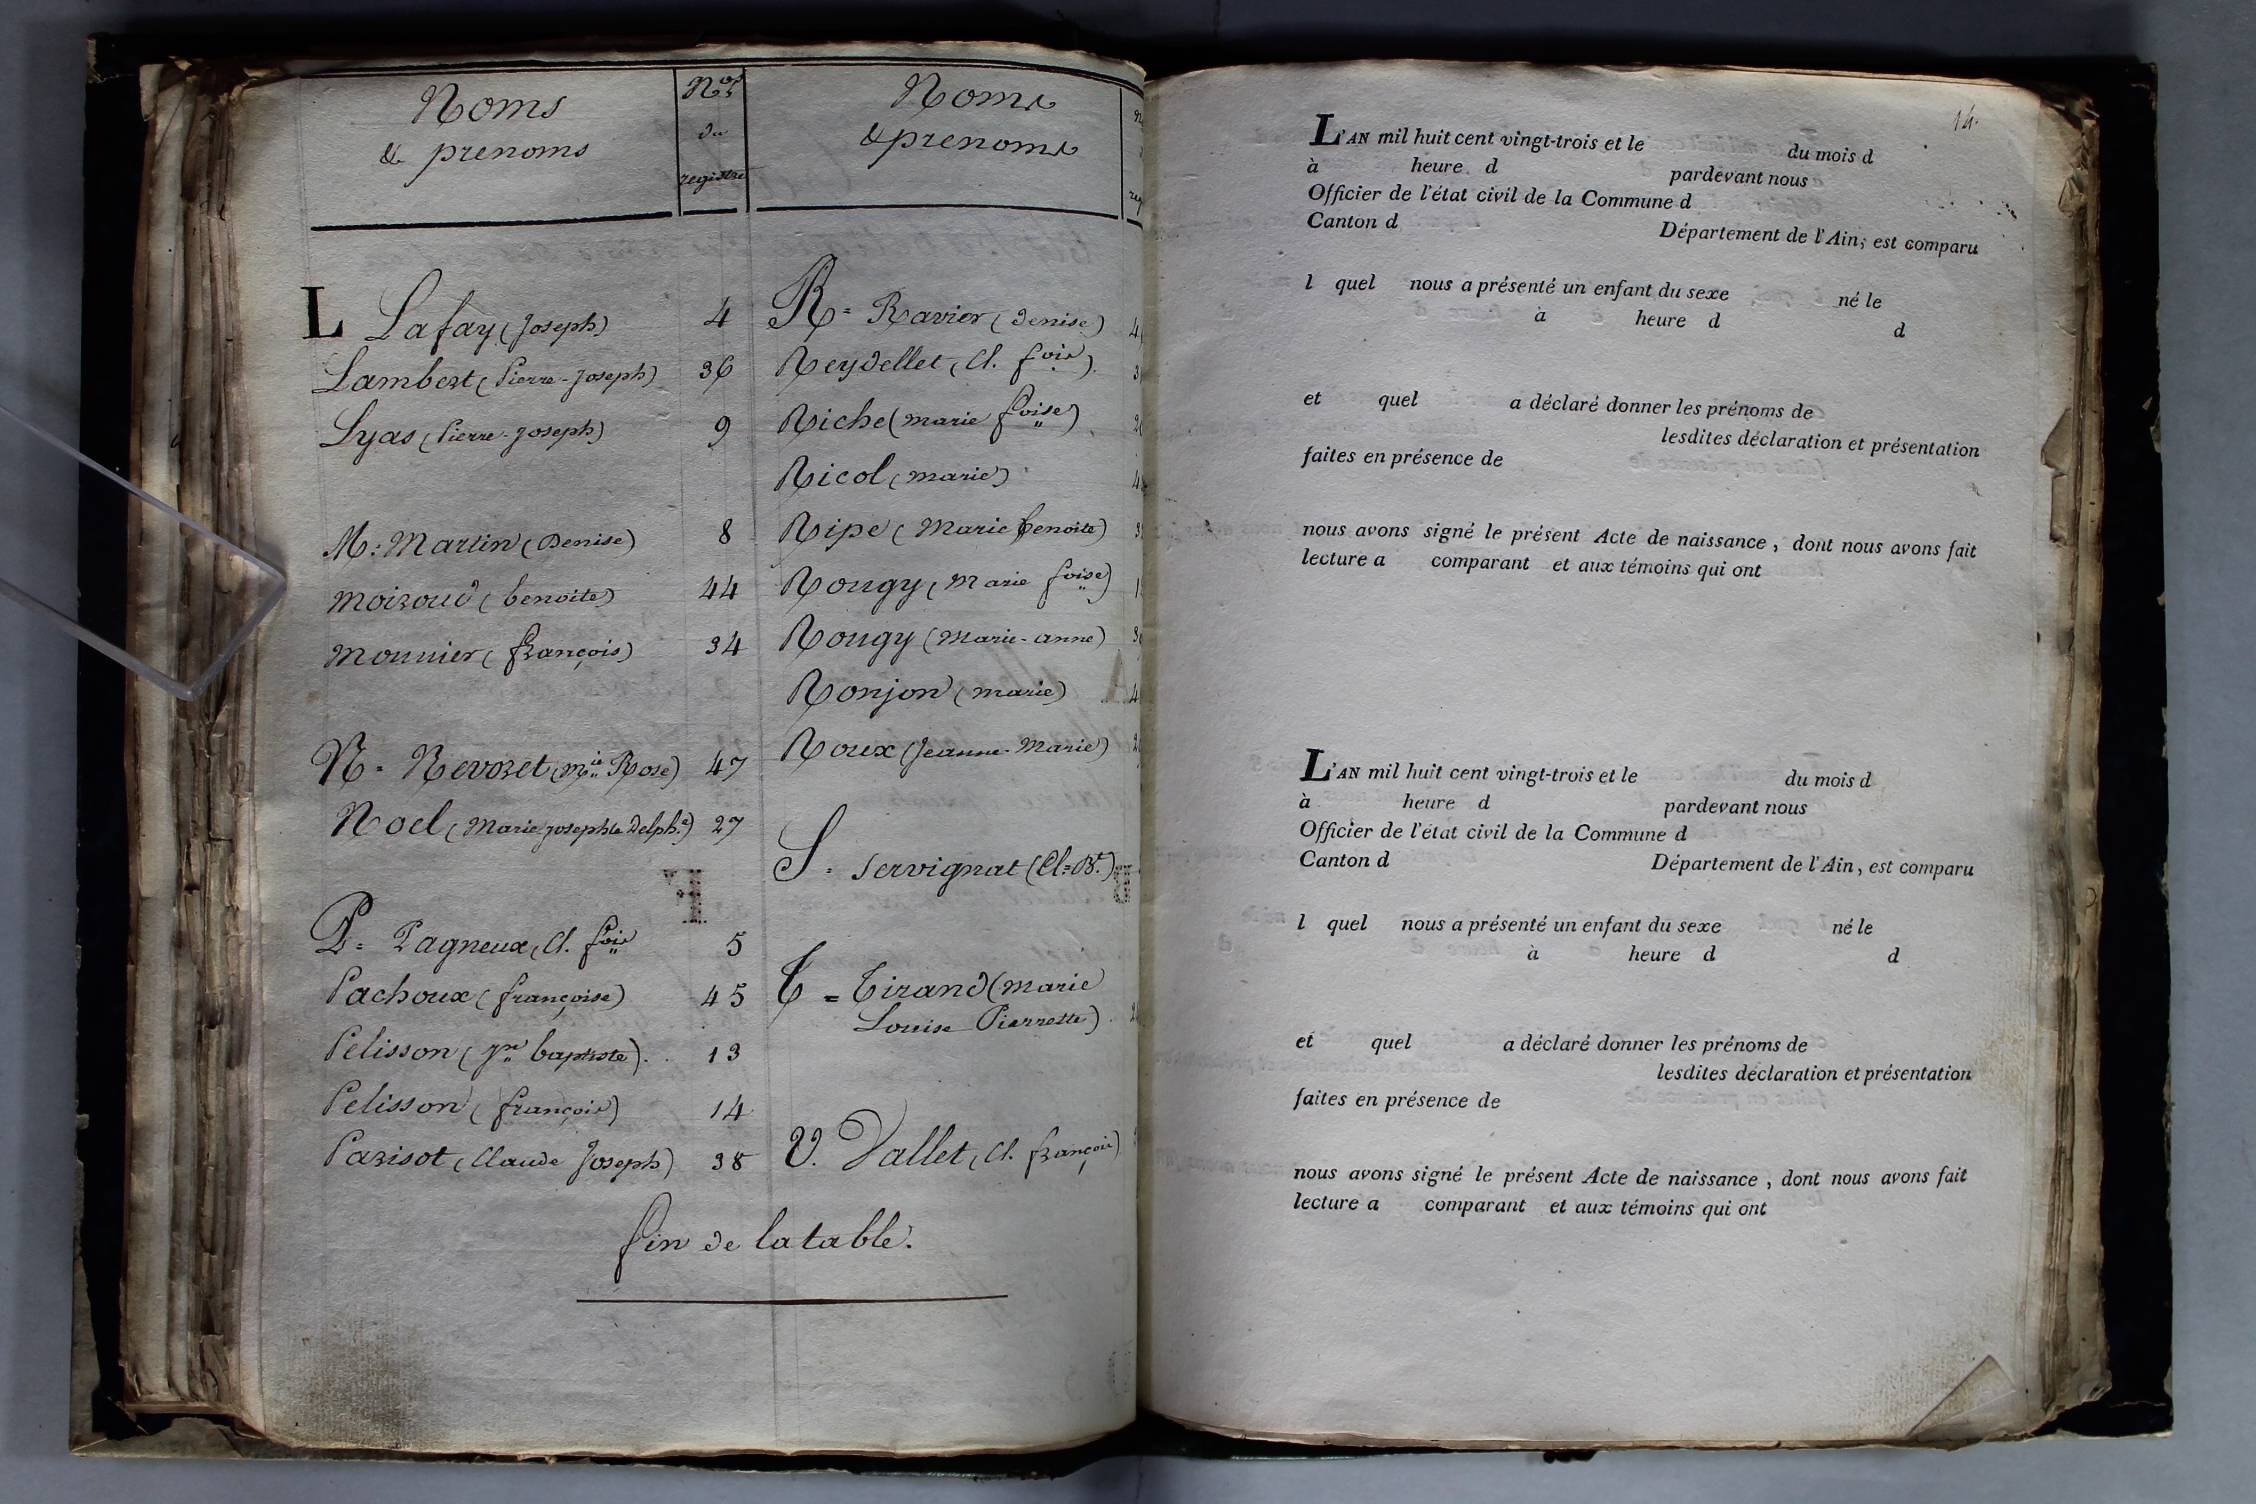 Noms
& prenoms
Nos
du
registre
L Lafay (Joseph) 4
Lambert (Pierre-Joseph) 36
Lyas (Pierre-Joseph) 9
M: Martin (Denise) 8
Moiroud (benoite) 44
Monnier (françois) 34
N = Nevoret (Mie Rose) 47
Noel (Marie Josephte Delph.e) 27
P = Pagneux (Cl. fois 5
Pachoux (françoise) 45
Pelisson (Jn baptiste) 13
Pelisson (françois) 14
Parisot (Claude Joseph) 38
Noms
& prenoms
R = Ravier (Denise)
Reydellet (Cl. fois)
Riche (marie foise)
Ricol (marie)
Ripe (Marie benoite)
Rougy (Marie foise)
Rougy (Marie-anne)
Ronjon (marie)
Roux (Jeanne-Marie)
S = Servignat (Cl=Bt.)
T = Tirand (marie
Louise Pierrette)
V. Vallet (Cl. françois)
fin de la table.
14.
L'AN mil huit cent vingt-trois et le du mois d
à heure d pardevant nous
Officier de l'état civil de la Commune d
Canton d Département de l'Ain, est comparu
l quel nous a présenté un enfant du sexe né le
à heure d d
et quel a déclaré donner les prénoms de
lesdites déclaration et présentation
faites en présence de
nous avons signé le présent Acte de naissance, dont nous avons fait
lecture a comparant et aux témoins qui ont
L'AN mil huit cent vingt-trois et le du mois d
à heure d pardevant nous
Officier de l'état civil de la Commune d
Canton d Département de l'Ain, est comparu
l quel nous a présenté un enfant du sexe né le
à heure d d
et quel a déclaré donner les prénoms de
lesdites déclaration et présentation
faites en présence de
nous avons signé le présent Acte de naissance, dont nous avons fait
lecture a comparant et aux témoins qui ont